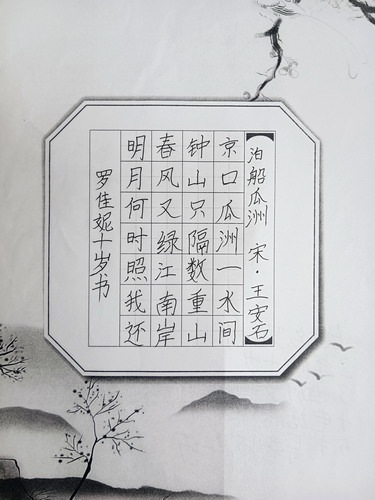 泊船瓜洲 宋·王安石
京口瓜洲一水间
钟山只隔数重山
春风又绿江南岸
明月何时照我还
罗佳妮十岁书